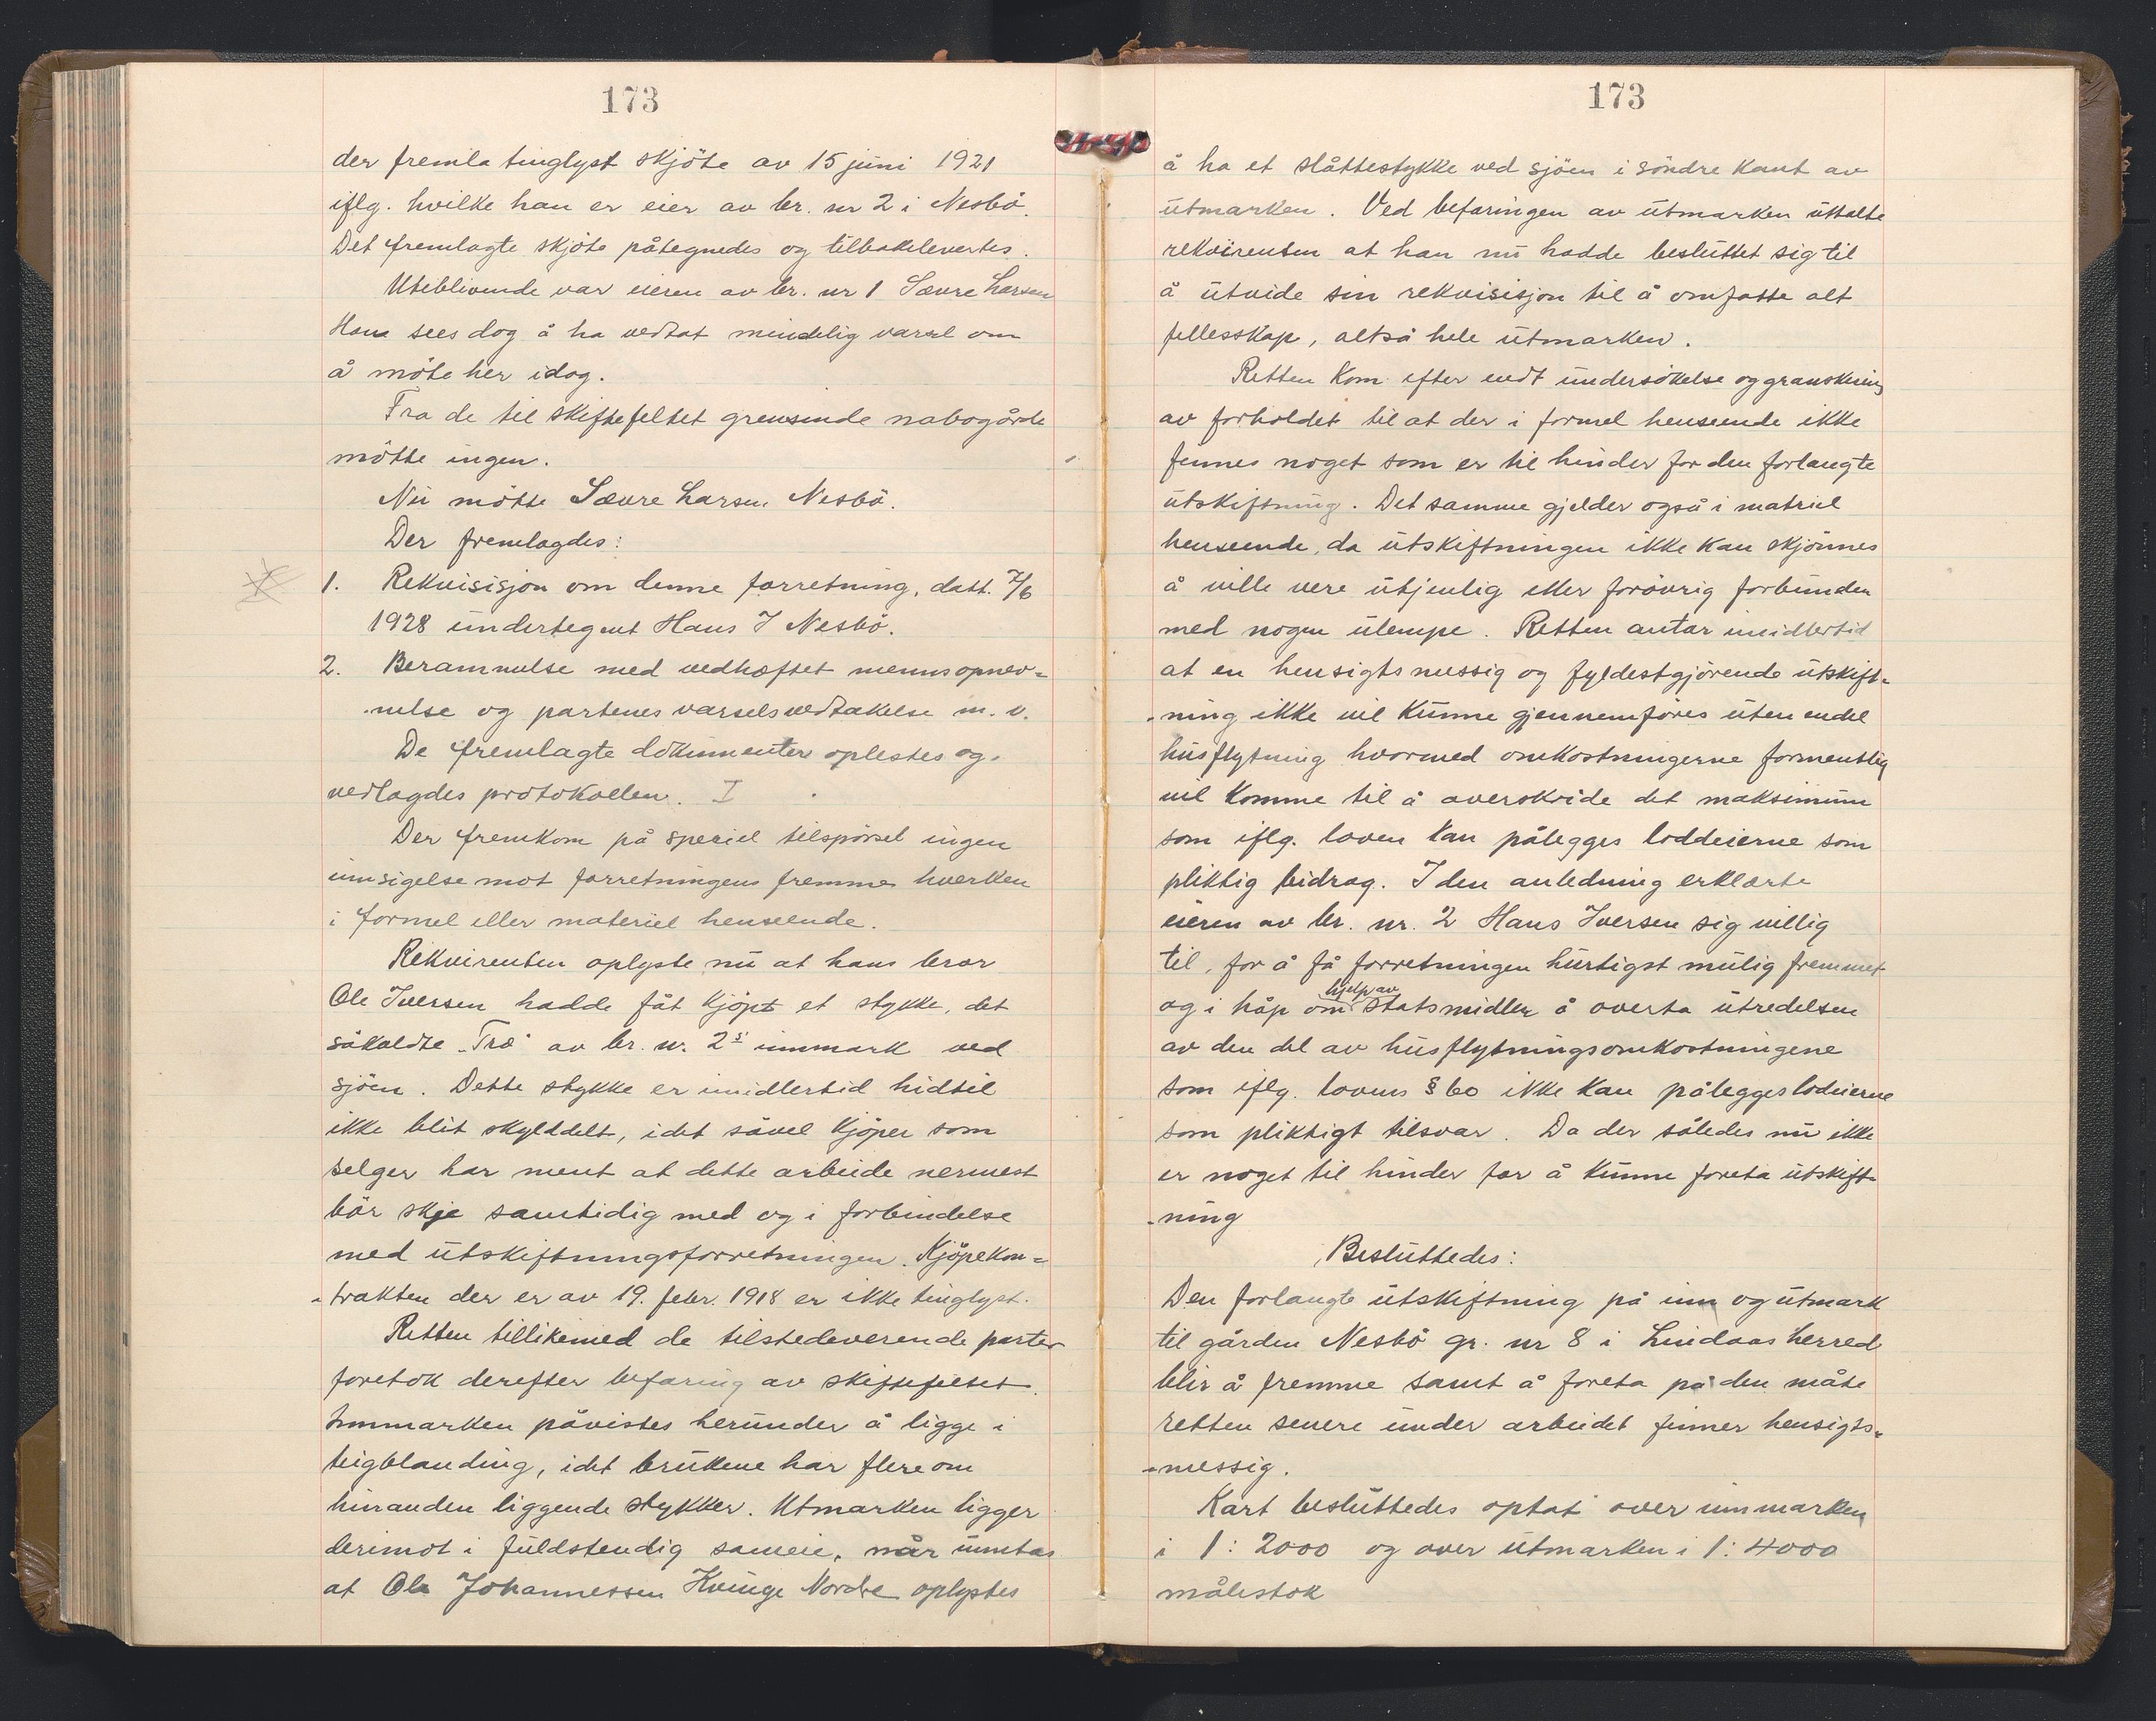 173
der fremla tinglyst skjöte av 15 juni 1921
iflg. hvilke han er eier av br. nr 2 i Nesbö.
Det fremlagte skjöte påtegnedes og tilbakelevertes.
Uteblivende var eieren av br. nr 1 Sævre Larsen
Han sees dog å ha vedtat mindelig varsel om
å möte her idag.
Fra de til skiftefeltet grensende nabogårde
mötte ingen.
Nu mötte Sævre Larsen Nesbö.
Der fremlagdes:
1. Rekvisisjon om denne forretning, datt. 7/6
1928 undertegnet Hans J Nesbö.
2. Berammelse med vedhæftet mennsopnev-
-nelse og partenes varselsvedtakelse m. v.
De fremlagte dokumenter oplestes og
vedlagdes protokollen. I
Der fremkom på speciel tilspörsel ingen
innsigelse mot forretningens fremme hverken
i formel eller materiel henseende.
Rekvirenten oplyste nu at hans bror
Ole Iversen hadde fåt kjöpt et stykke, det
såkaldte "Træ" av br. nr. 2s innmark ved
sjöen. Dette stykke er imidlertid hidtil
ikke blit skylddelt, idet såvel kjöper som
selger har ment at dette arbeide nermest
bör skje samtidig med og i forbindelse
med utskiftningsforretningen. Kjöpekon-
-trakten der er av 19. febr. 1918 er ikke tinglyst.
Retten tillikemed de tilstedeverende parter
foretok derefter befaring av skiftefeltet.
Innmarken påvistes herunder å ligge i
teigblanding, idet brukene har flere om
hinanden liggende stykker. Utmarken ligger
derimot i fuldstendig sameie, når unntas
at Ole Johannessen Kvinge Nordre oplystes
173
å ha et slåttestykke ved sjöen i söndre kant av
utmarken. Ved befaringen av utmarken uttalte
rekvirenten at han nu hadde besluttet sig til
å utvide sin rekvisisjon til å omfatte alt
fellesskap, altså hele utmarken.
Retten kom efter endt undersökelse og granskning
av forholdet til at der i formel henseende ikke
finnes noget som er til hinder for den forlangte
utskiftning. Det samme gjelder også i matriel
henseende, da utskiftningen ikke kan skjönnes
å ville vere utjenlig eller forövrig forbunden
med nogen ulempe. Retten antar imidlertid
at en hensigtsmessig og fyldestgjörende utskift-
-ning ikke vil kunne gjennemföres uten endel
husflytning hvormed omkostningerne formentlig
vil komme til å overskride det maksimum
som iflg. loven kan pålegges loddeierne som
pliktig bidrag. I den anledning erklærte
eieren av br. nr. 2 Hans Iversen sig villig
til, for å få forretningen hurtigst mulig fremmet
og i håp om hjelp av statsmidler å overta utredelsen
av den del av husflytningsomkostningene
som iflg. lovens § 60 ikke kan pålegges lodeierne
som pliktigt tilsvar. Da der således nu ikke
er noget til hinder for å kunne foreta utskift-
-ning
Besluttedes:
Den forlangte utskiftning på inn og utmark
til gården Nesbö gr. nr 8 i Lindaas herred
blir å fremme samt å foreta på den måte
retten senere under arbeidet finner hensigts-
-messig.
Kart besluttedes optat over innmarken
i 1: 2000 og over utmarken i 1: 4000
målestok